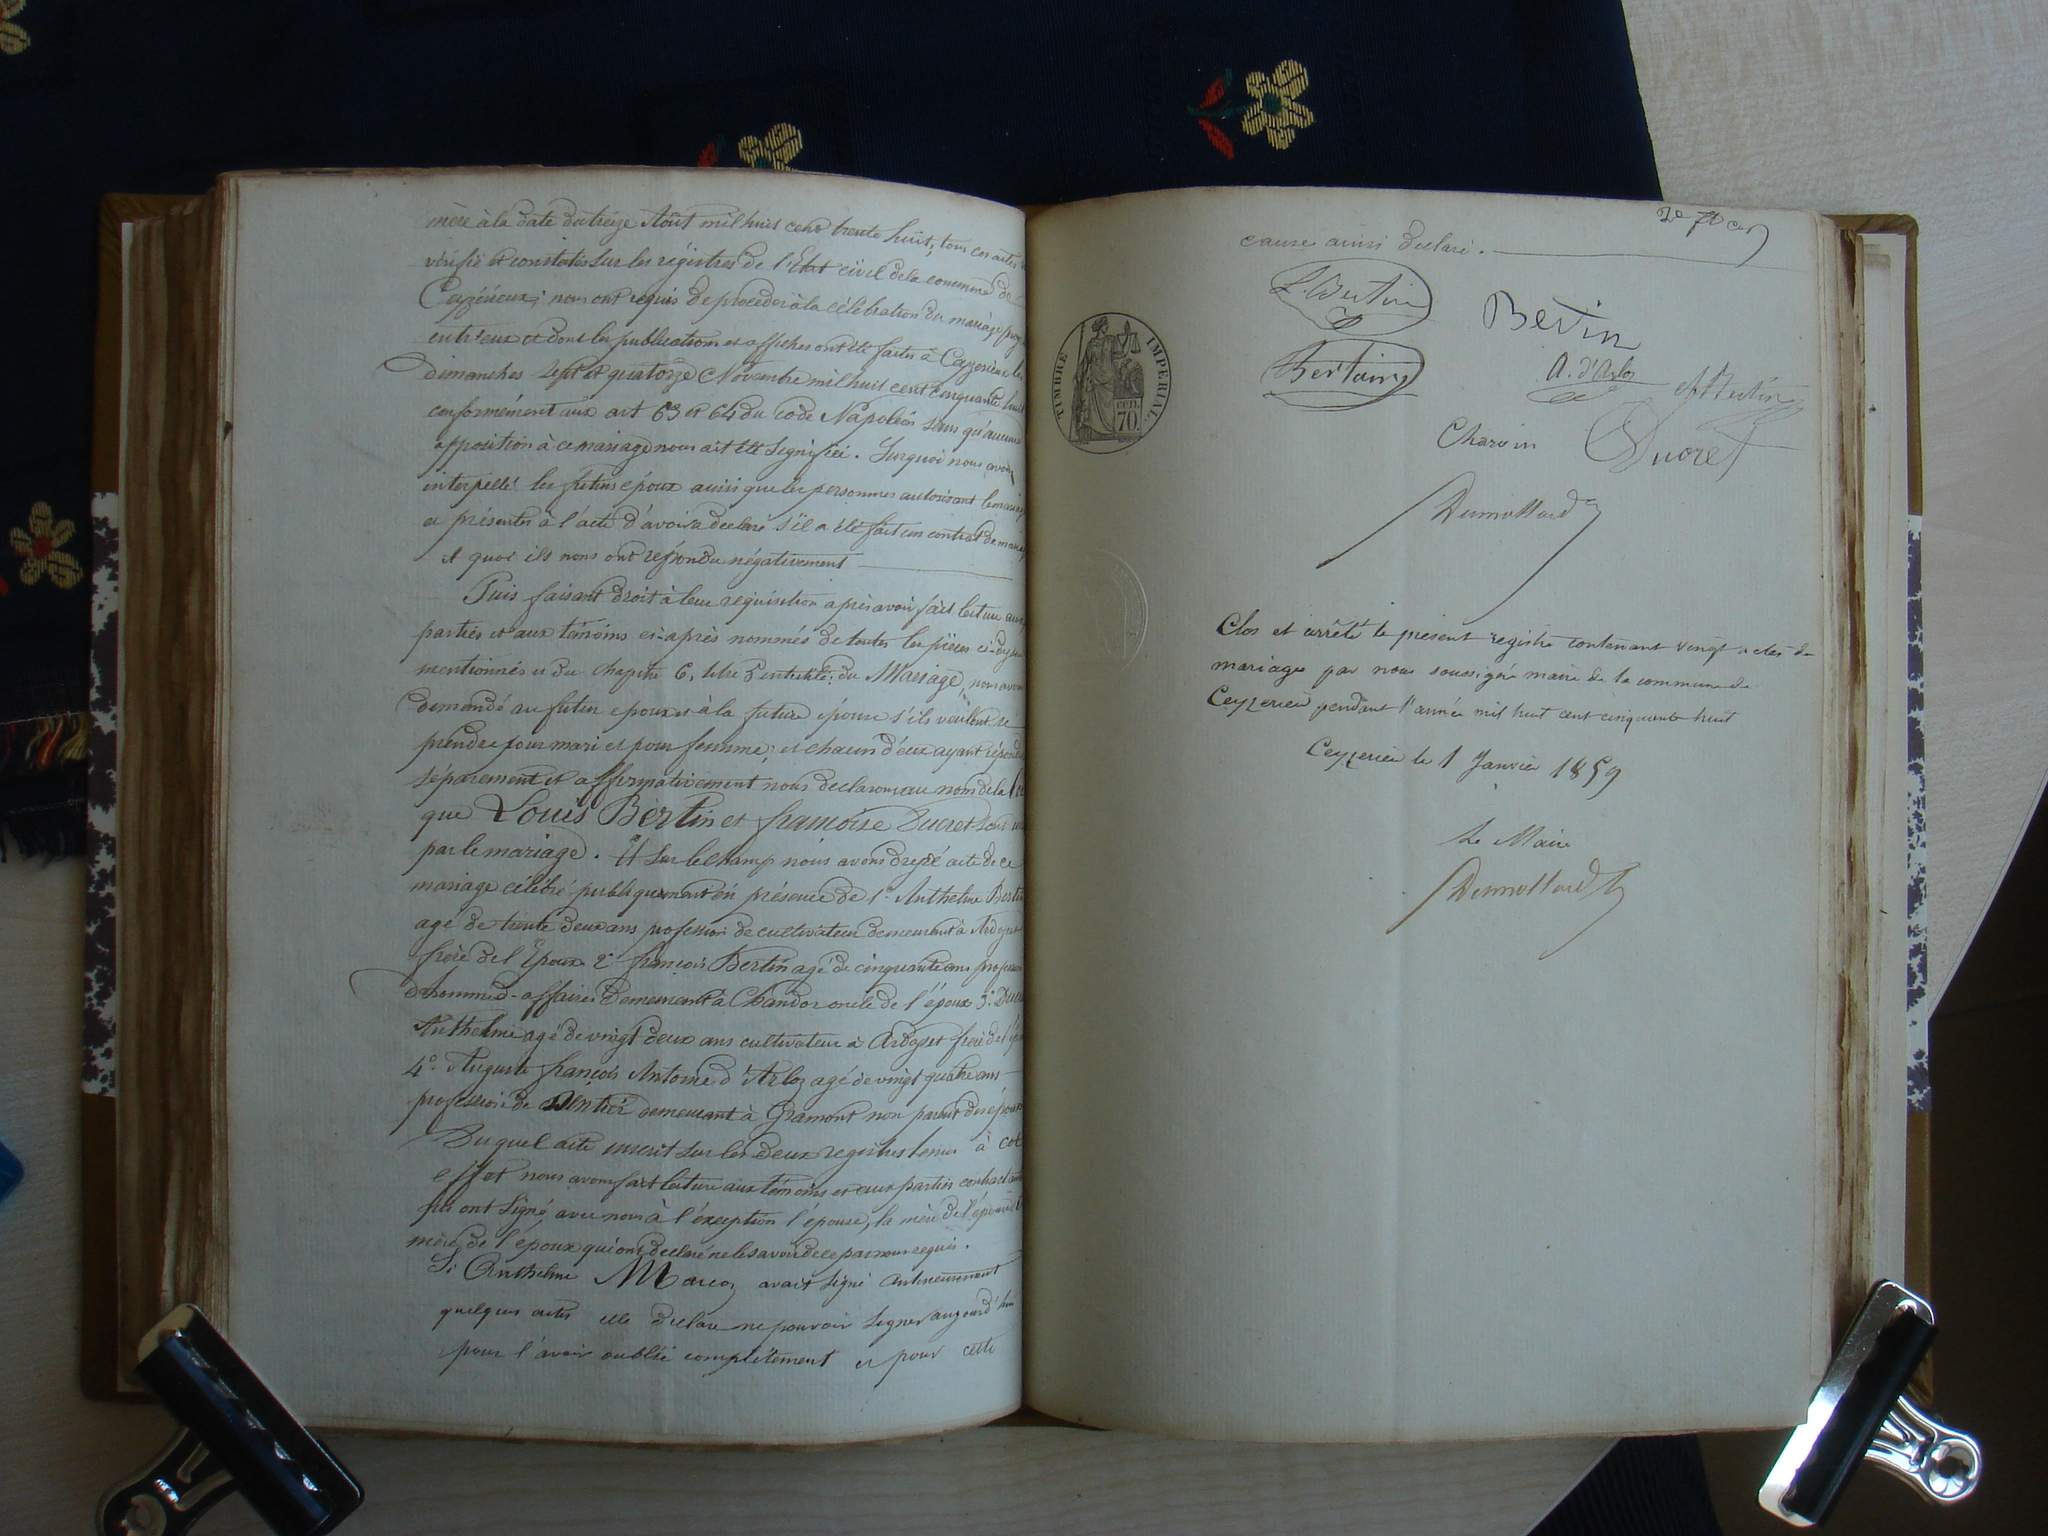 mère à la date du treize Août mil huit cent trente huit; tous ces actes
vérifié et constatés sur les régistres de l'Etat civil de la commune de
Ceyzérieux; nous ont requis de procéder à la célébration du mariage
entr'eux et dont les publications et affiches ont été faites à Ceyzerieu les
dimanches sept et quatorze Novembre mil huit cent cinquante huit
conformément aux art 63 et 64 du code Napoléon sans qu'aucune
opposition à ce mariage nous ait été signifiée. Surquoi nous avons
interpellé les futurs époux ainsi que les personnes autorisant le mariage
et présentes à l'acte d'avoir à declaré s'il a été fait un contrat de mariage
A quoi ils nous ont répondu négativement
Puis faisant droit à leur requisition après avoir fait lecture aux
parties et aux témoins ci-après nommés de toutes les pièces ci-dessus
mentionnés et du chapitre 6, titre 5 intitulé: du Mariage, nous avons
demandé au futur epoux et à la future épouse s'ils veulent se
prendre pour mari et pour femme; et chacun d'eux ayant répondu
séparement et affirmativement nous declarons au nom de la loi
que Louis Bertin et françoise Ducret sont unis
par le mariage. Et sur le champ nous avons dressé acte de ce
mariage célébré publiquement en présence de 1° Anthelme Bertin
agé de trente deux ans profession de cultivateur demeurant à Ardosset
frère de l'Epoux 2° françois Bertin agé de cinquante ans profession
d'homme d'affaires demeurant à Chandos oncle de l'époux 3° Ducret
Anthelme agé de vingt deux ans cultivateur à Ardosset frère de l'épouse
4° Auguste françois Antoine d'Arloz agé de vingt quatre ans
profession de rentier demeurant à Gramont non parent des époux
Duquel acte inscrit sur les deux registres tenus à cet
effet nous avons fait lecture aux témoins et aux parties contractantes
qui ont signé avec nous à l'exception l'épouse, la mère de l'épouse et
mère de l'époux qui ont declaré ne le savoir de ce par nous requis.
Si Anthelme Marcoz avait signé antérieurement
quelques actes elle déclare ne pouvoir signer aujourd'hui
pour l'avoir oublié complètement et pour cette
cause ainsi declaré.
L. Bertin
Bertin
Bertin
A. d'Arloz
A Bertin
Charvin
Ducret
Dumollard
TIMBRE IMPERIAL
CEN.
70.
Clos et arrêté le présent registre contenant vingt actes de
mariages par nous soussigné maire de la commune de
Ceyzerieu pendant l'année mil huit cent cinquante huit
Ceyzerieu le 1 Janvier 1859
Le Maire
Dumollard